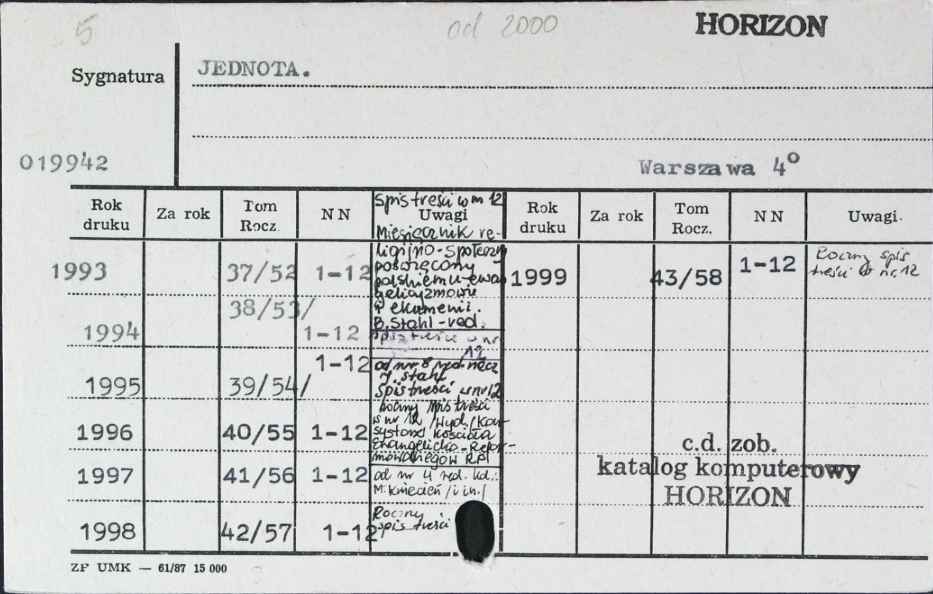 5
od 2000
HORIZON
Sygnatura
JEDNOTA.
019942
Warszawa 4°
Rok druku
Za rok
Tom Rocz.
NN
Spis treści w nr 12
Uwagi
Rok druku
Za rok
Tom Rocz.
NN
Uwagi.
Miesięcznik re-
ligijno-społeczny
poświęcony
polskiemu ewan
gelicyzmowi
i ekumenii.
B. Stahl-red.
1993 37/52 1-12
1999 43/58 1-12
Roczny spis
treści w nr. 12
1994 38/53/ 1-12
spis treści w nr
12
1995 39/54/ 1-12
od nr 8 red. nacz
M. Stahl
Spis treści w nr 12
1996 40/55 1-12
Roczny spis treści
w nr 12 /Wyd./Kon-
systorz Kościoła
Ewangelicko-Refor-
mowanego w RP/
1997 41/56 1-12
od nr 4 red. kol.:
M. Kwiecień /i in./
1998 42/57 1-12
Roczny
spis treści
c.d. zob.
katalog komputerowy
HORIZON
ZP UMK — 61/87 15 000